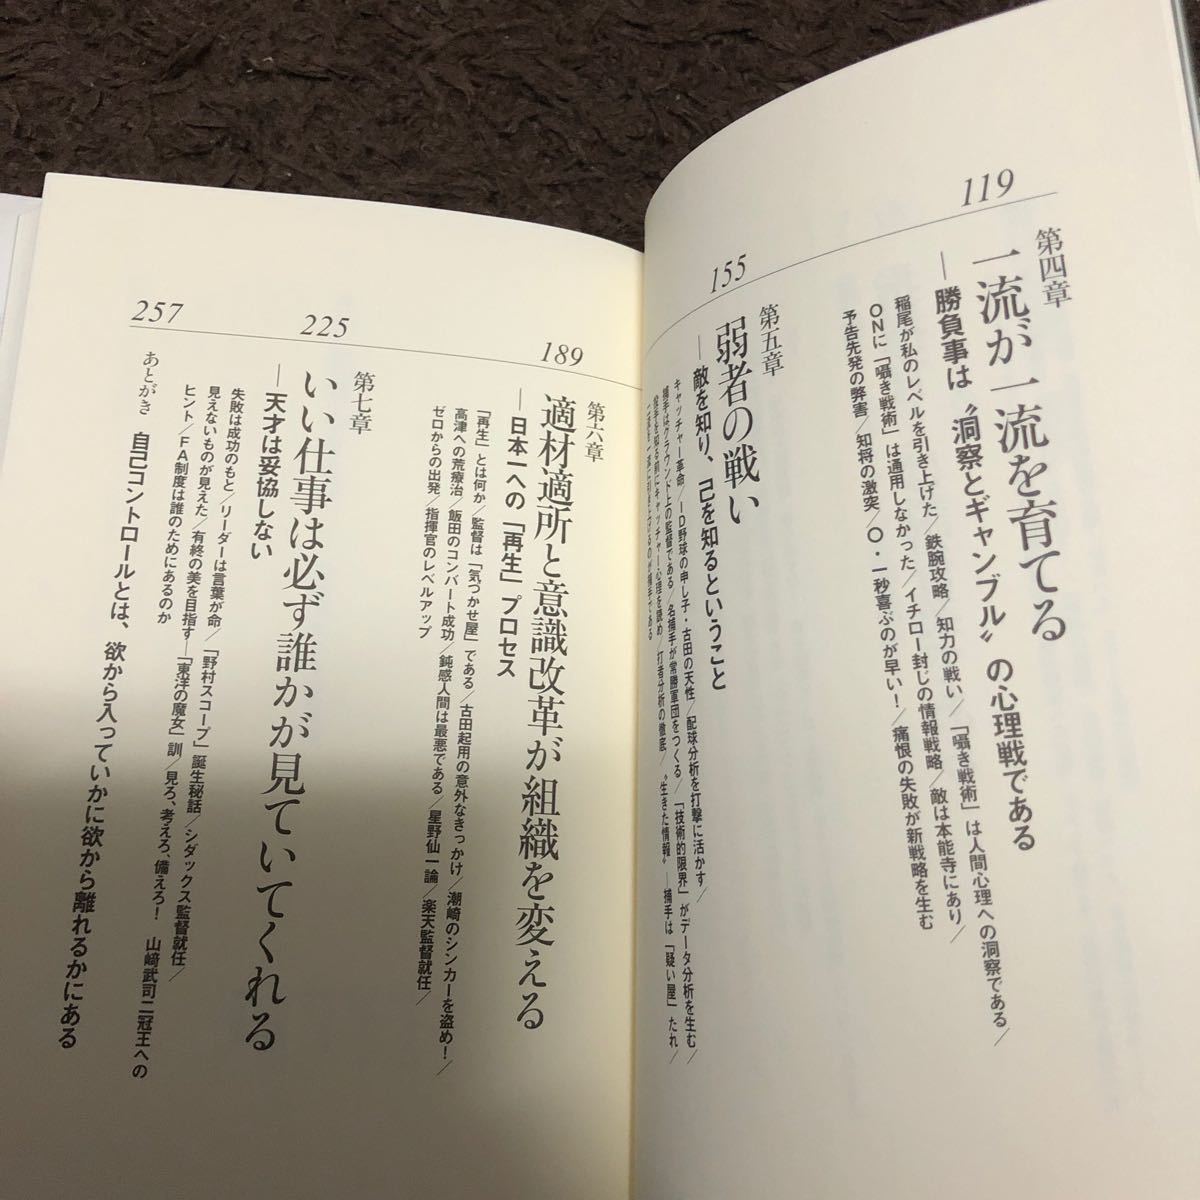 119
第四章
一流が一流を育てる
―勝負事は〝洞察とギャンブル〟の心理戦である
稲尾が私のレベルを引き上げた/鉄腕攻略/知力の戦い/「囁き戦術」は人間心理への洞察である/
ONに「囁き戦術」は通用しなかった/イチロー封じの情報戦略/敵は本能寺にあり/
予告先発の弊害/知将の激突/〇・一秒喜ぶのが早い!/痛恨の失敗が新戦略を生む
155
第五章
弱者の戦い
―敵を知り、己を知るということ
キャッチャー革命/ID野球の申し子・古田の天性/配球分析を打撃に活かす/
捕手はグラウンド上の監督である/名捕手が常勝軍団をつくる/「技術的限界」がデータ分析を生む/
投手を知る前にキャッチャー心理を読め/打者分析の徹底/〝生きた情報〟―捕手は「疑い屋」たれ/
一流を一流に引き上げるのが捕手である
189
第六章
適材適所と意識改革が組織を変える
―日本一への「再生」プロセス
「再生」とは何か/監督は「気づかせ屋」である/古田起用の意外なきっかけ/潮崎のシンカーを盗め!/
高津への荒療治/飯田のコンバート成功/鈍感人間は最悪である/星野仙一論/楽天監督就任/
ゼロからの出発/指揮官のレベルアップ
225
第七章
いい仕事は必ず誰かが見ていてくれる
―天才は妥協しない
失敗は成功のもと/リーダーは言葉が命/「野村スコープ」誕生秘話/シダックス監督就任/
見えないものが見えた/有終の美を目指す―「東洋の魔女」訓/見ろ、考えろ、備えろ! 山﨑武司二冠王への
ヒント/FA制度は誰のためにあるのか
257
あとがき 自己コントロールとは、欲から入っていかに欲から離れるかにある